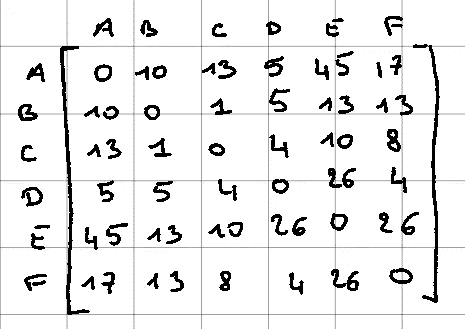 A B C D E F
A 0 10 13 5 45 17
B 10 0 1 5 13 13
C 13 1 0 4 10 8
D 5 5 4 0 26 4
E 45 13 10 26 0 26
F 17 13 8 4 26 0